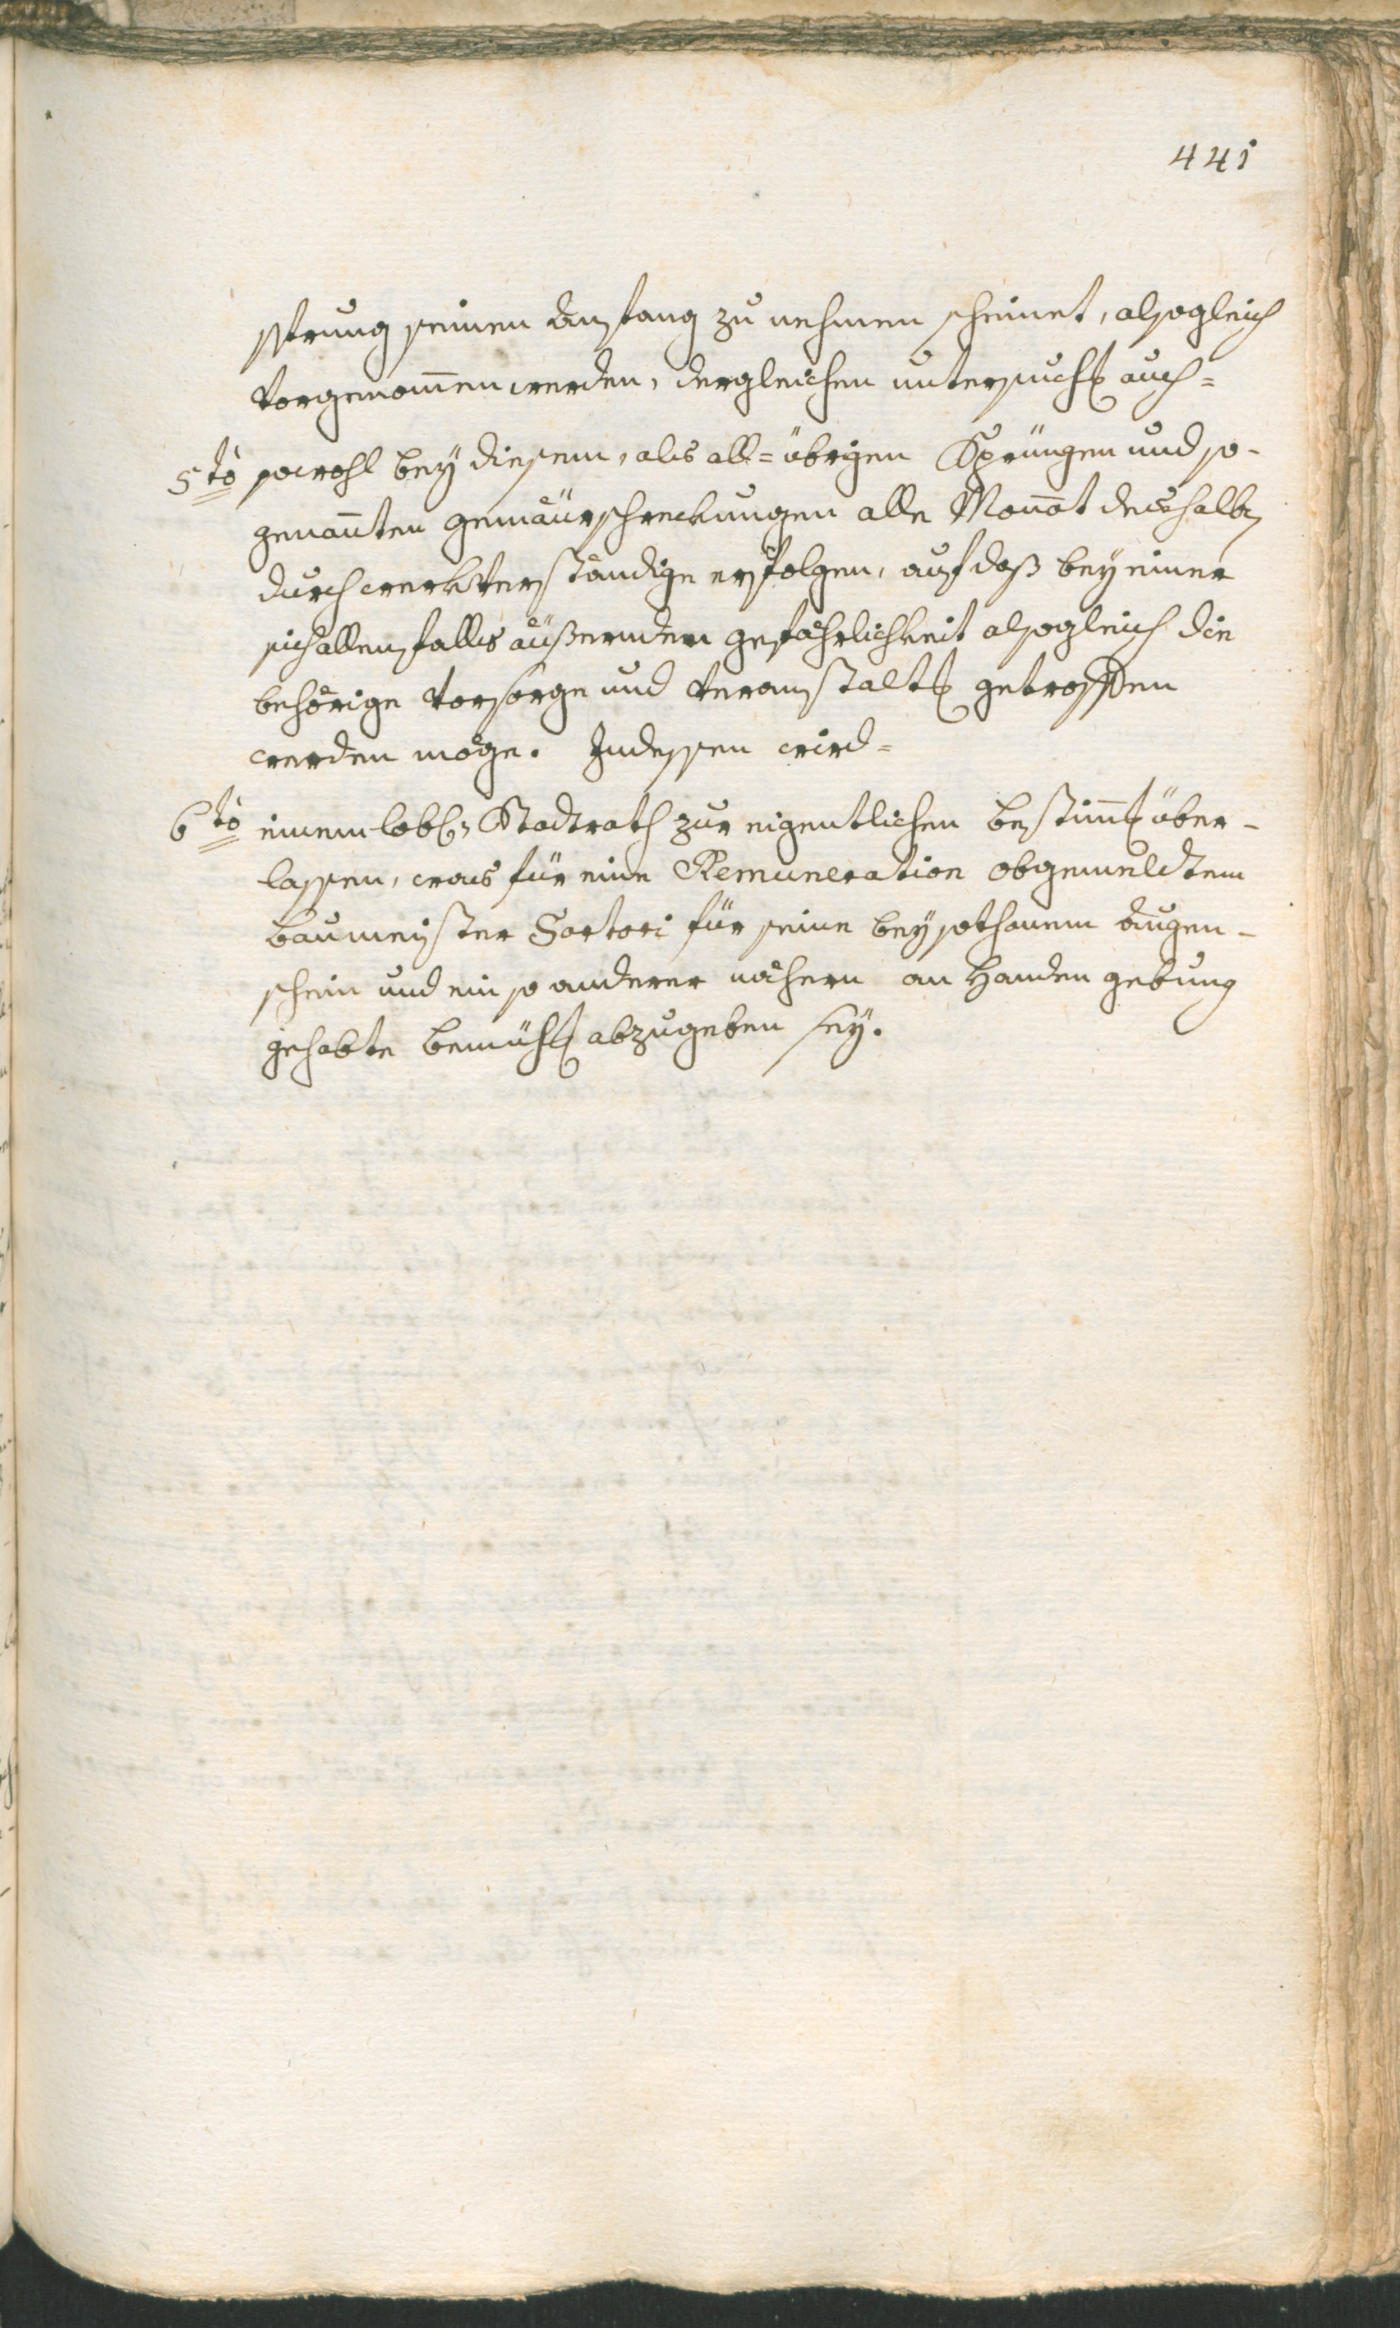 441
sprung seinen Anfang zu nehmen scheinet, alsogleich
vorgenom̄en werden, dergleichen untersuch[ung] auch=
5to sowohl beÿ diesem, als all=übrigen Sprüngen und so-
genan̄ten gemäurschreckungen alle Monat deshalb[en]
durch werkverständige erfolgen, auf daß beÿ einer
sich allenfalls äußernden gefährlichkeit alsogleich die
behörige Vorsorge und Veranstalt[ung] getroffen
werden möge. Indessen wird=
6to einem löbl: Stadtrath zur eigentlichen bestim̄[ung] über-
lassen, was für eine Remuneration obgemeldtem
Baumeister Sartori für seine beÿ sothanem Augen-
schein und ein so anderer nähern an Handen gebung
gehabte bemüh[ung] abzugeben seÿ.